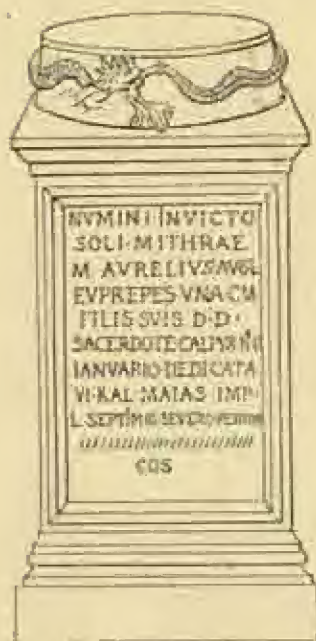 NVMINI INVICTO
SOLI·MITHRAE
M AVRELIVS AVGL
EVPREPES VNA CM
FILIS SVIS D·D·
SACERDOTE
IANVARIO·DEDICATA
VI·KAL MAIAS IMP·
L·SEPTIMIO SEVERO
COS